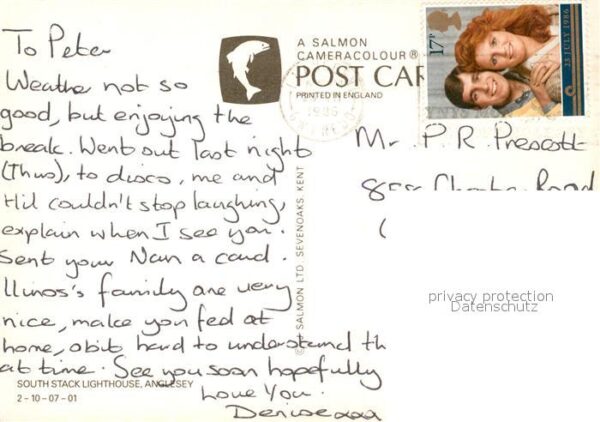 To Peter
Weather not so
good, but enjoying the
break. Went out last night
(Thus), to disco, me and
Hil couldn't stop laughing,
explain when I see you.
Sent your Nan a card.
Llinos's family are very
nice, make you feel at
home, abit hard to understand th
at time. See you soon hopefully
Love You.
Denise xxx
SOUTH STACK LIGHTHOUSE, ANGLESEY
2-10-07-01
A SALMON
CAMERACOLOUR®
POST CAR
PRINTED IN ENGLAND
© J SALMON LTD SEVENOAKS KENT
1986
17P
23 JULY 1986
Mr P. R. Prescott
Road
privacy protection
Datenschutz